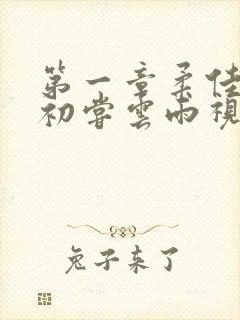 第一章柔佳
初尝雲雨視
兔子来了